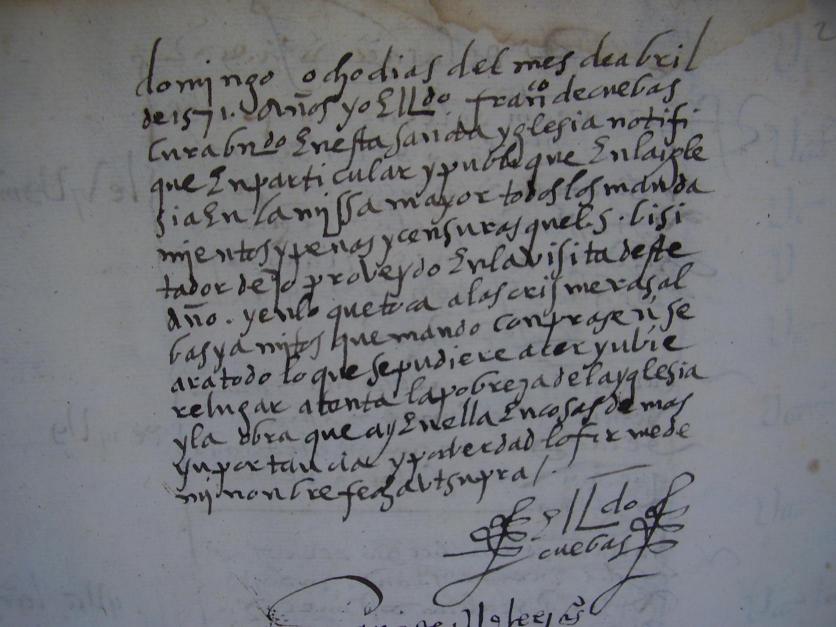 domingo ocho dias del mes de abril
de 1571. Años yo El Ldo franco de cuebas
cura bndo En esta sancta yglesia notifi
que En particular y publiqué En la igle
sia En la missa mayor todos los manda
mientos y penas y censuras quel S. bisi
tador dexo proveydo En la visita deste
Año. y en lo que toca a las crismeras al
bas y amitos que mando conprasen se
ara todo lo que se pudiere acer y ubie
re lugar atenta la pobreza de la yglesia
y la obra que ay En ella En cosas de mas
ynportancia y por verdad lo firme de
mi nonbre fecha ut supra /.
El Ldo
cuebas